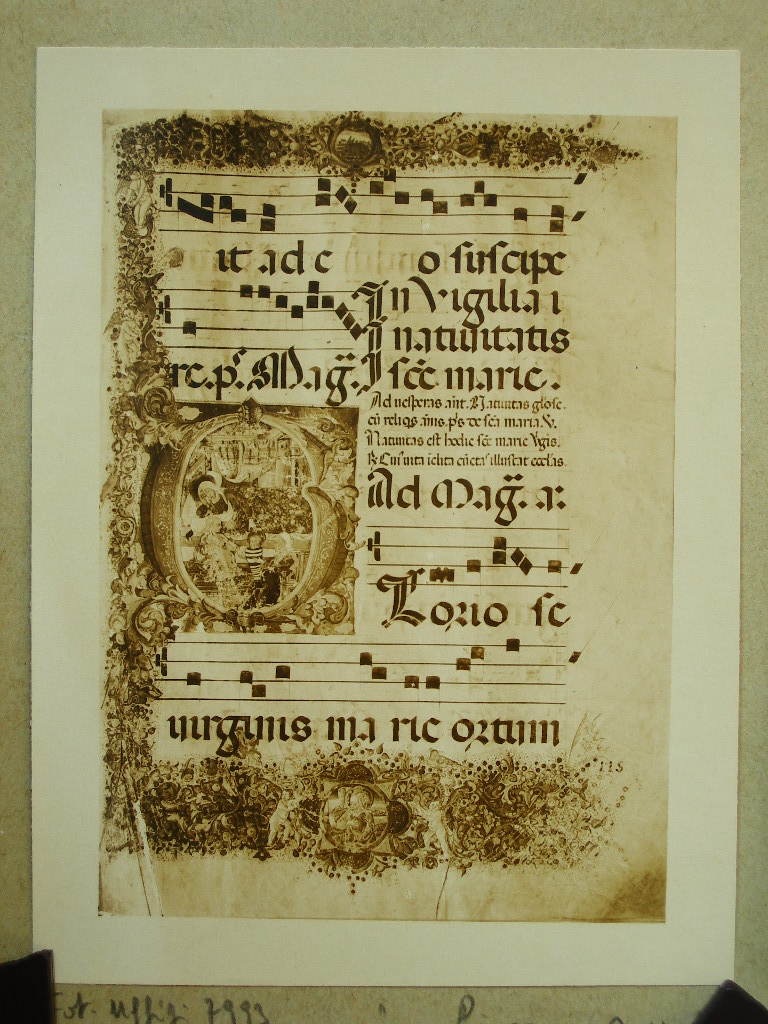 it ad e o suscipe
In vigilia i
nativitatis
re. ps. Mag̃. scē marie.
Ad vesperas ant. Nativitas glose.
cū reliqs. ps de scā maria. V.
Nativitas est hodie scē marie Vgis.
illustrat eccl'as.
Ad Mag̃. a:
Lorio se
virginis ma rie ortum
115
Fot. Uffizi 7993